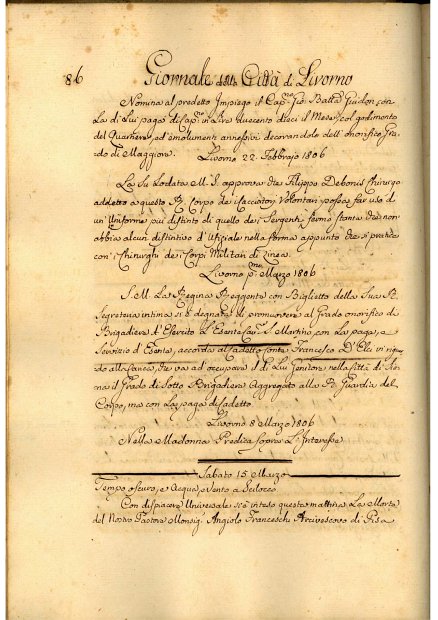 86 Giornale della Città di Livorno
Nomina al predetto Impiego il Cap.no Gio: Batta Guidon, con
la di lui paga di Cap.no in Lire duecento dieci il Mese, col godimento
del Quartiere, ed emolumenti annessivi decorandolo dell'onorifico Gra-
do di Maggiore. Livorno 22. Febbrajo 1806
La Su Lodata M. S. approva che Filippo Debonis Chirurgo
addetto a questo R. Corpo de i Cacciatori Volontari possa far uso d
un Uniforme più distinto di quello de i Sergenti, fermo stante che non
abbia alcun distintivo d'Ufiziale nella forma appunto che si pratica
con i Chirurghi de i Corpi Militari di Linea.
Livorno p.mo Marzo 1806
S. M. La Regina Reggente con Biglietto della Sua R.
Segreteria intima si è degnata di promuovere al Grado onorifico de
Brigadiere d'Esercito L'Esente Cav. S. Martino, con La paga, e
Servizio d'Esente, accorda al Cadetto Conte Francesco D'Elci in rigu-
do alla carica, che va ad occupare il di Lui Genitore nella Città di Ro-
ma il Grado di Sotto Brigadiere Aggregato alla R. Guardia del
Corpo, ma con La paga di Cadetto
Livorno 8 Marzo 1806
Nella Madonna Predita sopra L'Interesse
Sabato 15 Marzo
Tempo oscuro, e Acqua, e Vento a Scilocco
Con dispiacere Universale si è inteso questa mattina La Morte
del Nostro Pastore Monsig. Angiolo Franceschi Arcivescovo di Pisa